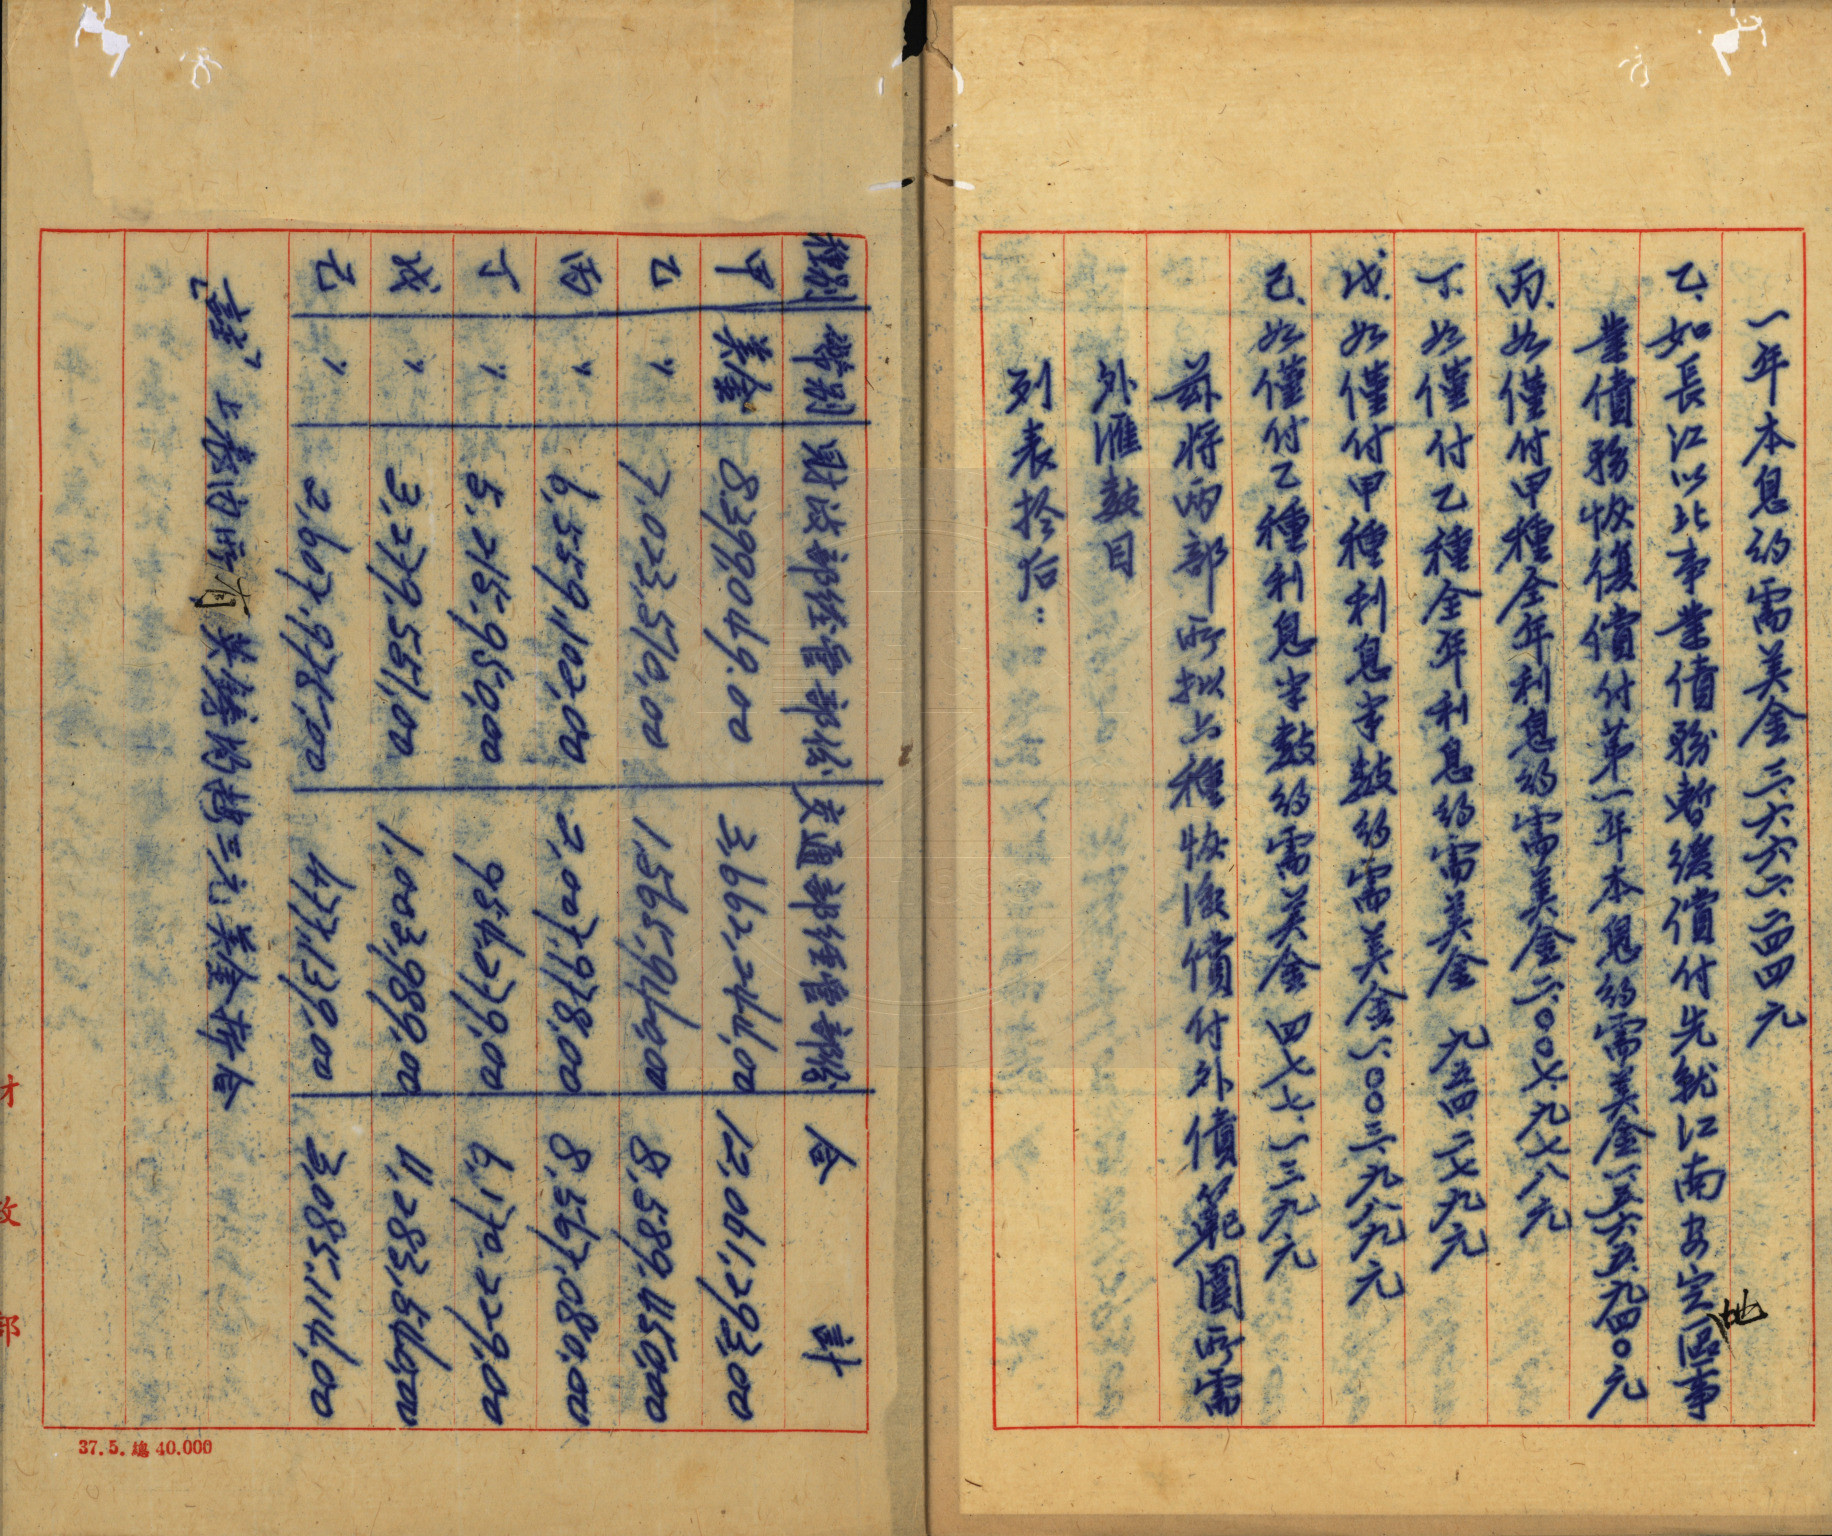 一年本息約需美金三、六六二、二四四元
乙、如長江以北事業債務暫緩償付先就江南安定地區事
業債務恢復償付第一年本息約需美金一、五六五、九四〇元
丙、如僅付甲種全年利息約需美金二、〇〇七、九七八元
丁、如僅付乙種全年利息約需美金九五四、二七九元
戊、如僅付甲種利息半數約需美金一、〇〇三、九八九元
己、如僅付乙種利息半數約需美金四七七、一三九元
茲將兩部所擬六種恢復償付外債範圍所需
外匯數目
列表於后：
種別 幣別 財政部經管部份 交通部經管部份 合計
甲 美金 8,399,049.00 3,662,244.00 12,061,293.00
乙 〃 7,023,510.00 1,565,940.00 8,589,450.00
丙 〃 6,559,102.00 2,007,978.00 8,567,080.00
丁 〃 5,215,950.00 954,279.00 6,170,229.00
戊 〃 3,279,551.00 1,003,989.00 4,283,540.00
己 〃 2,607,975.00 477,139.00 3,085,114.00
註：上表內所有英鎊均按三元美金折合
財政部
37.5.總 40.000